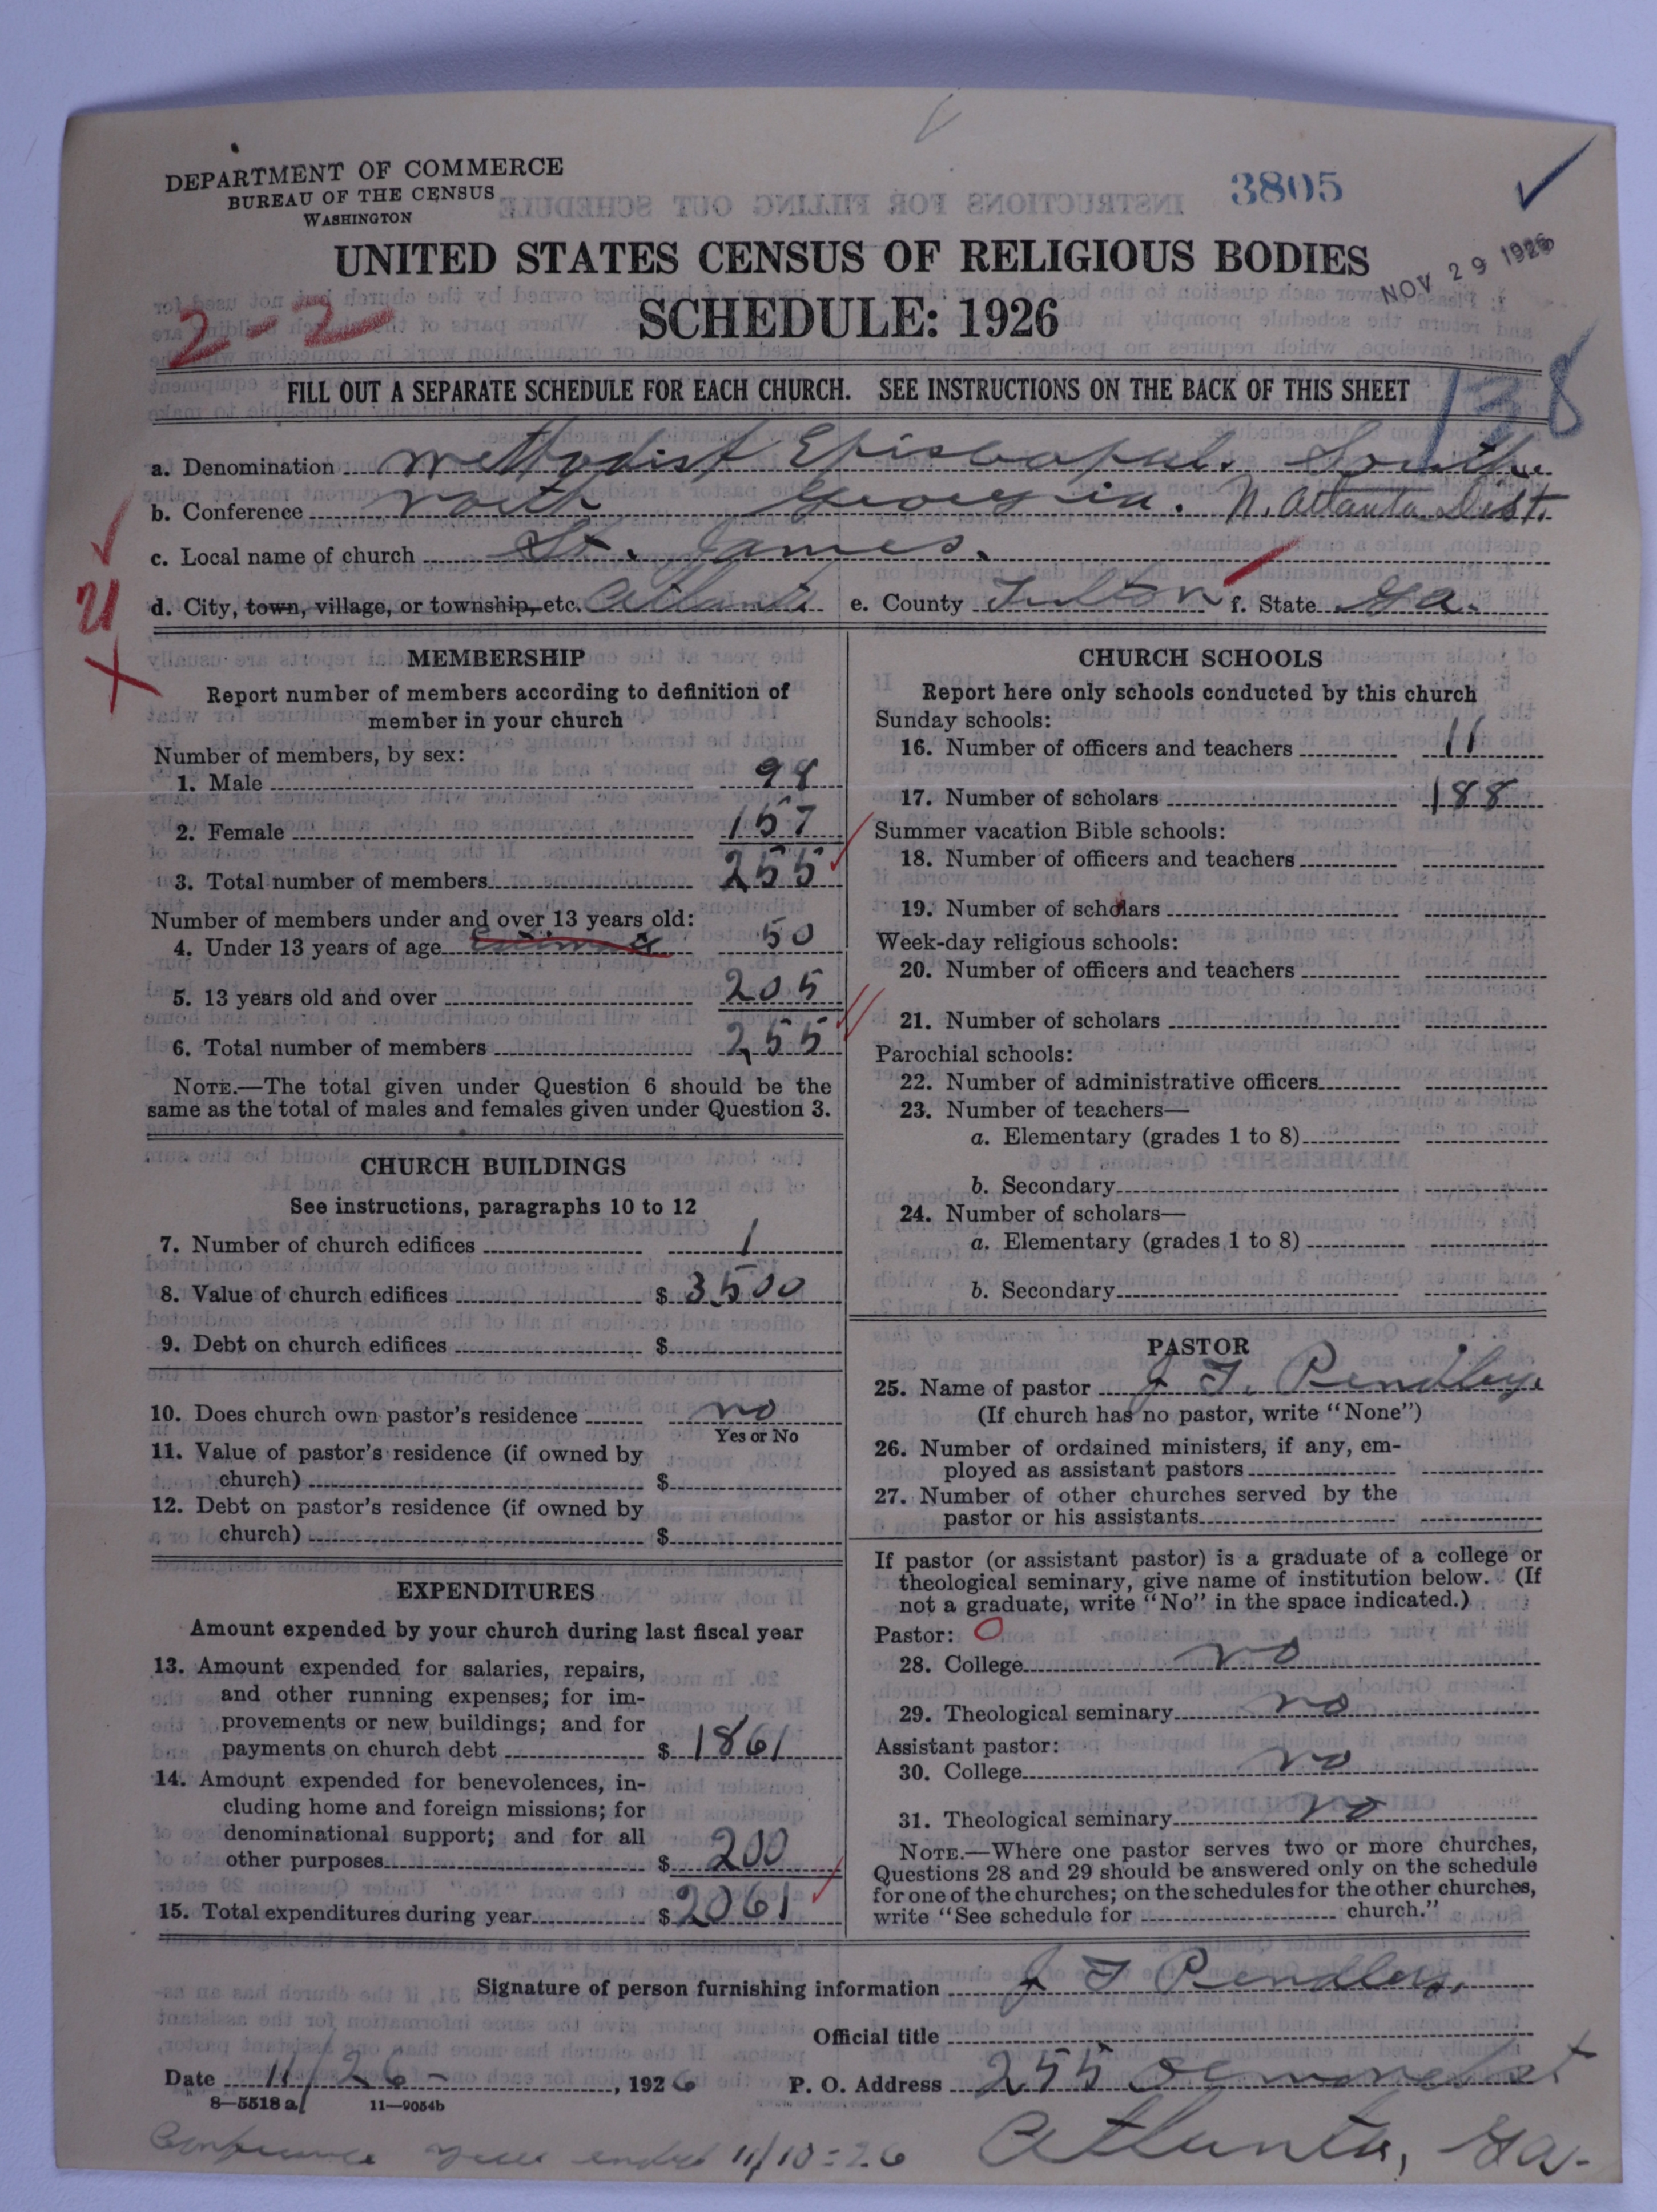 DEPARTMENT OF COMMERCE
BUREAU OF THE CENSUS
WASHINGTON
3805
NOV 29 1926
UNITED STATES CENSUS OF RELIGIOUS BODIES
SCHEDULE: 1926
2-2
FILL OUT A SEPARATE SCHEDULE FOR EACH CHURCH. SEE INSTRUCTIONS ON THE BACK OF THIS SHEET
138
a. Denomination Methodist Episcopal. South
b. Conference North Georgia. N. Atlanta Dist.
c. Local name of church St. James.
d. City, town, village, or township, etc. Atlanta e. County Fulton f. State Ga.
MEMBERSHIP
Report number of members according to definition of
member in your church
Number of members, by sex:
1. Male 98
2. Female 157
3. Total number of members 255
Number of members under and over 13 years old:
4. Under 13 years of age estimate 50
5. 13 years old and over 205
6. Total number of members 255
NOTE.—The total given under Question 6 should be the
same as the total of males and females given under Question 3.
CHURCH BUILDINGS
See instructions, paragraphs 10 to 12
7. Number of church edifices 1
8. Value of church edifices $ 3500
9. Debt on church edifices $
10. Does church own pastor's residence no
Yes or No
11. Value of pastor's residence (if owned by
church) $
12. Debt on pastor's residence (if owned by
church) $
EXPENDITURES
Amount expended by your church during last fiscal year
13. Amount expended for salaries, repairs,
and other running expenses; for im-
provements or new buildings; and for
payments on church debt $ 1861
14. Amount expended for benevolences, in-
cluding home and foreign missions; for
denominational support; and for all
other purposes $ 200
15. Total expenditures during year $ 2061
CHURCH SCHOOLS
Report here only schools conducted by this church
Sunday schools:
16. Number of officers and teachers 11
17. Number of scholars 188
Summer vacation Bible schools:
18. Number of officers and teachers
19. Number of scholars
Week-day religious schools:
20. Number of officers and teachers
21. Number of scholars
Parochial schools:
22. Number of administrative officers
23. Number of teachers—
a. Elementary (grades 1 to 8)
b. Secondary
24. Number of scholars—
a. Elementary (grades 1 to 8)
b. Secondary
PASTOR
25. Name of pastor J. T. Pendley.
(If church has no pastor, write "None")
26. Number of ordained ministers, if any, em-
ployed as assistant pastors
27. Number of other churches served by the
pastor or his assistants
If pastor (or assistant pastor) is a graduate of a college or
theological seminary, give name of institution below. (If
not a graduate, write "No" in the space indicated.)
Pastor: O
28. College no
29. Theological seminary no
Assistant pastor:
30. College no
31. Theological seminary no
NOTE.—Where one pastor serves two or more churches,
Questions 28 and 29 should be answered only on the schedule
for one of the churches; on the schedules for the other churches,
write "See schedule for church."
Signature of person furnishing information J T Pendley.
Official title
Date 11/26-, 1926 P. O. Address 255 st
8—5518 a 11—9054b
Conference year ended 11/10-26 Atlanta, Ga.